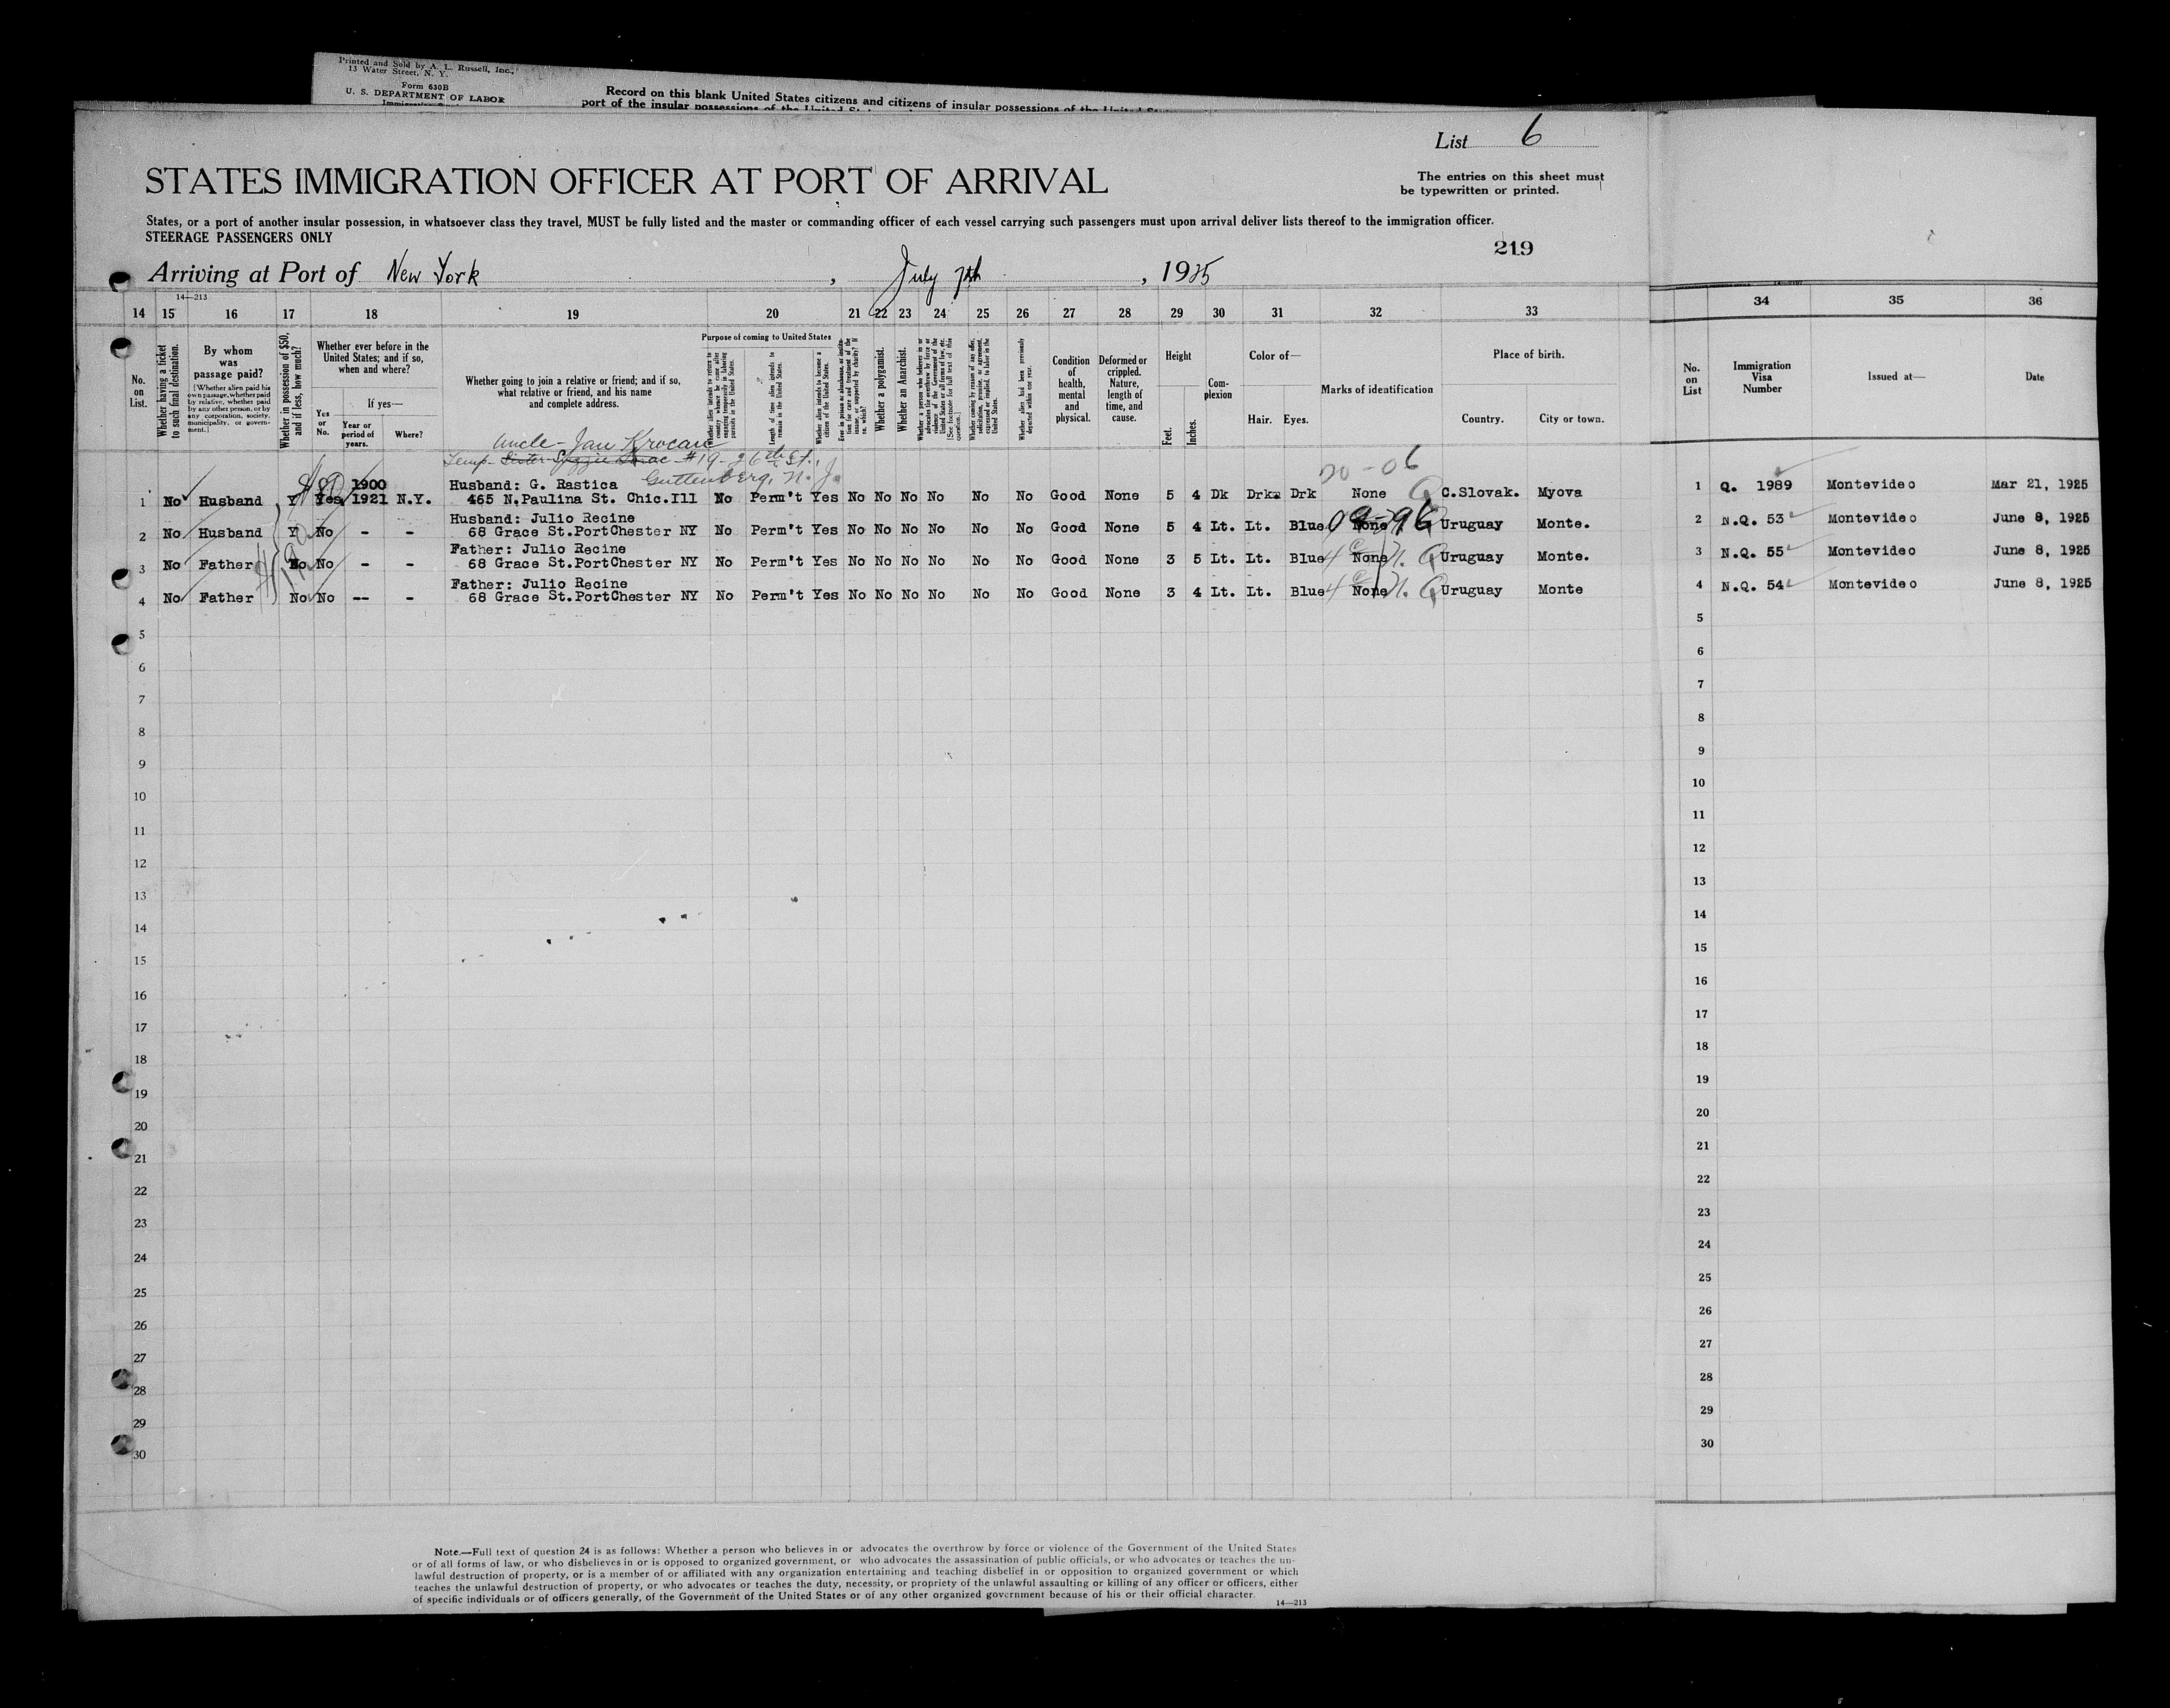 Printed and Sold by A. L. Russell, Inc.,
13 Water Street, N. Y.
Form 630B
U. S. DEPARTMENT OF LABOR
Record on this blank United States citizens and citizens of insular possessions of the United
port of the insular possessions of the United
List 6
STATES IMMIGRATION OFFICER AT PORT OF ARRIVAL
The entries on this sheet must
be typewritten or printed.
States, or a port of another insular possession, in whatsoever class they travel, MUST be fully listed and the master or commanding officer of each vessel carrying such passengers must upon arrival deliver lists thereof to the immigration officer.
STEERAGE PASSENGERS ONLY
219
Arriving at Port of New York, July 7th, 1925
14—213
14 15 16 17 18 19 20 21 22 23 24 25 26 27 28 29 30 31 32 33 34 35 36
No. on List.
Whether having a ticket to such final destination.
By whom was passage paid?
[Whether alien paid his own passage, whether paid by relative, whether paid by any other person, or by any corporation, society, municipality, or government.]
Whether in possession of $50, and if less, how much?
Whether ever before in the United States; and if so, when and where?
Yes or No.
If yes—
Year or period of years.
Where?
Whether going to join a relative or friend; and if so, what relative or friend, and his name and complete address.
Purpose of coming to United States
Whether alien intends to return to country whence he came after engaging temporarily in laboring pursuits in the United States.
Length of time alien intends to remain in the United States.
Whether alien intends to become a citizen of the United States.
Whether a polygamist.
Whether an Anarchist.
Whether coming by reason of any offer, solicitation, promise, or agreement, expressed or implied, to labor in the United States.
Whether alien had been previously deported within one year.
Condition of health, mental and physical.
Deformed or crippled. Nature, length of time, and cause.
Height
Feet.
Inches.
Complexion
Color of—
Hair. Eyes.
Marks of identification
Place of birth.
Country. City or town.
No. on List
Immigration Visa Number
Issued at—
Date
Uncle - Jan Krocan
Temp - Sister #19 - 26th St.,
Guttenberg, N. J.
20-06
1 No Husband Y Yes 1900 1921 N.Y. Husband: G. Rastica 465 N.Paulina St. Chic.Ill No Perm't Yes No No No No No No Good None 5 4 Dk Drk Drk None C.Slovak. Myova 1 Q. 1989 Montevideo Mar 21, 1925
2 No Husband Y No - - Husband: Julio Recine 68 Grace St.PortChester NY No Perm't Yes No No No No No No Good None 5 4 Lt. Lt. Blue None Uruguay Monte. 2 N.Q. 53 Montevideo June 8, 1925
3 No Father No No - - Father: Julio Recine 68 Grace St.PortChester NY No Perm't Yes No No No No No No Good None 3 5 Lt. Lt. Blue None Uruguay Monte. 3 N.Q. 55 Montevideo June 8, 1925
4 No Father No No -- - Father: Julio Recine 68 Grace St.PortChester NY No Perm't Yes No No No No No No Good None 3 4 Lt. Lt. Blue None Uruguay Monte 4 N.Q. 54 Montevideo June 8, 1925
5 5
6 6
7 7
8 8
9 9
10 10
11 11
12 12
13 13
14 14
15 15
16 16
17 17
18 18
19 19
20 20
21 21
22 22
23 23
24 24
25 25
26 26
27 27
28 28
29 29
30 30
Note.—Full text of question 24 is as follows: Whether a person who believes in or advocates the overthrow by force or violence of the Government of the United States
or of all forms of law, or who disbelieves in or is opposed to organized government, or who advocates the assassination of public officials, or who advocates or teaches the un-
lawful destruction of property, or is a member of or affiliated with any organization entertaining and teaching disbelief in or opposition to organized government or which
teaches the unlawful destruction of property, or who advocates or teaches the duty, necessity, or propriety of the unlawful assaulting or killing of any officer or officers, either
of specific individuals or of officers generally, of the Government of the United States or of any other organized government because of his or their official character.
14—213